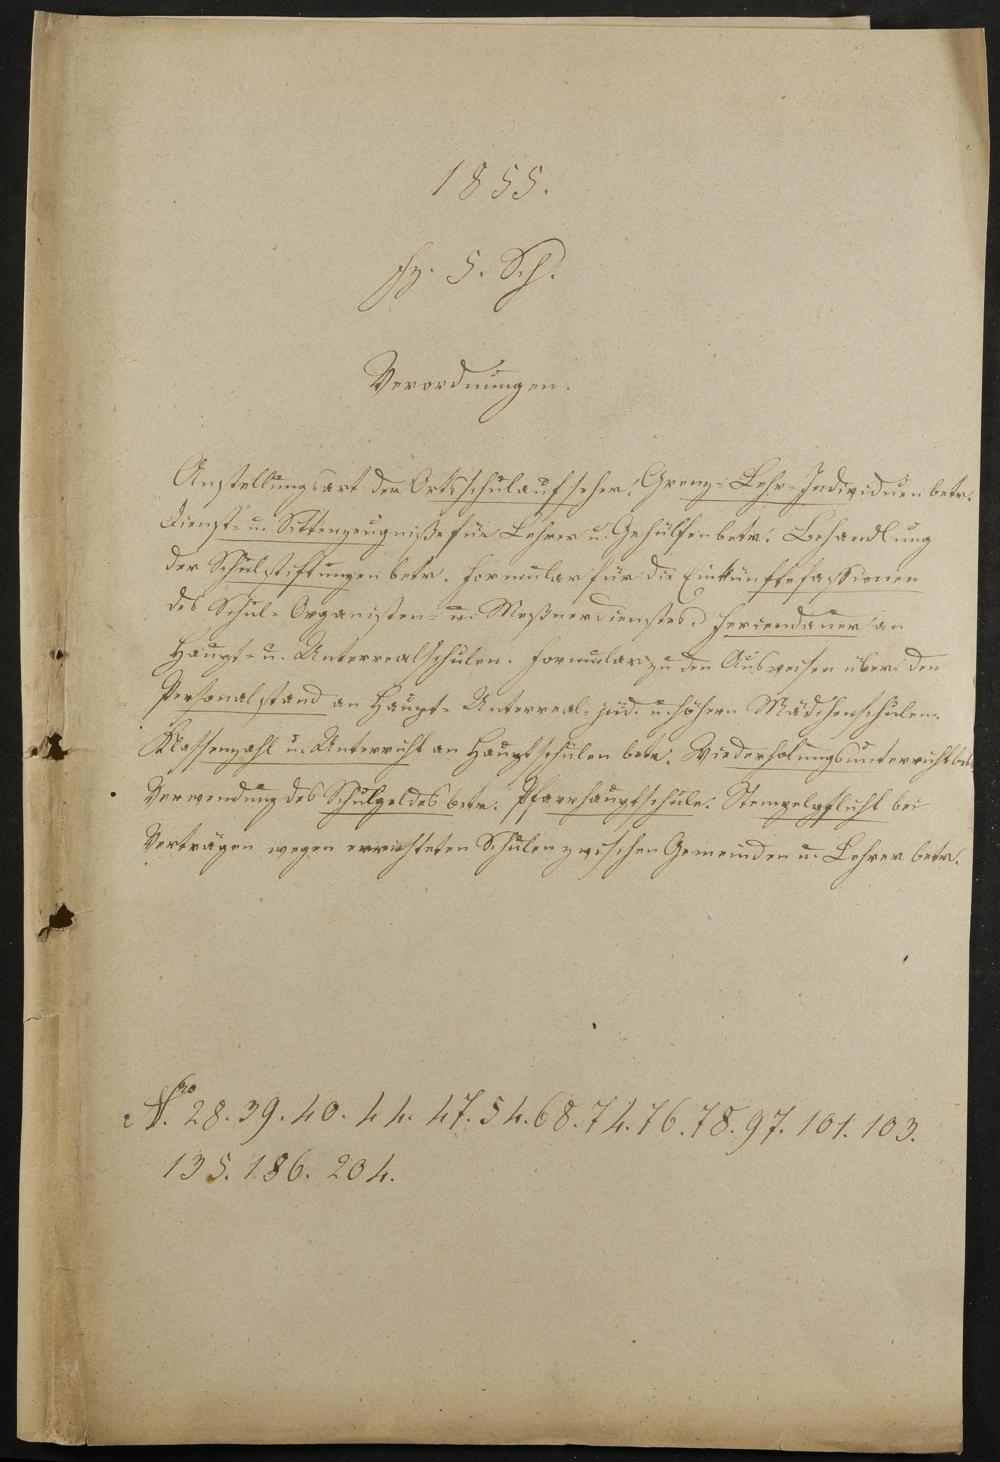 1855.
Fz. 5. Sch.
Verordnungen.
Anstellungsart der Ortsschulaufseher. Grenz-Lehr-Individuen betr.
Dienst- u. Sittenzeugniße für Lehrer u. Gehülfen betr. Behandlung
der Schulstiftungen betr. Formular für die Einkünftefassionen
des Schul- Organisten- u. Meßnerdienstes. Feriendauer an
Haupt- u. Unterrealschulen. Formulare zu den Ausweisen über den
Personalstand an Haupt- Unterreal- jüd. u. höhern Mädchenschulen.
Klassenzahl u. Unterricht an Hauptschulen betr. Wiederholungsunterricht betr.
Verwendung des Schulgeldes betr. Pfarrhauptschule. Stempelpflicht bei
Verträgen wegen errichteten Schulen zwischen Gemeinden u. Lehrer betr.
Nro. 28. 39. 40. 44. 47. 54. 68. 74. 76. 78. 97. 101. 103.
135. 186. 204.